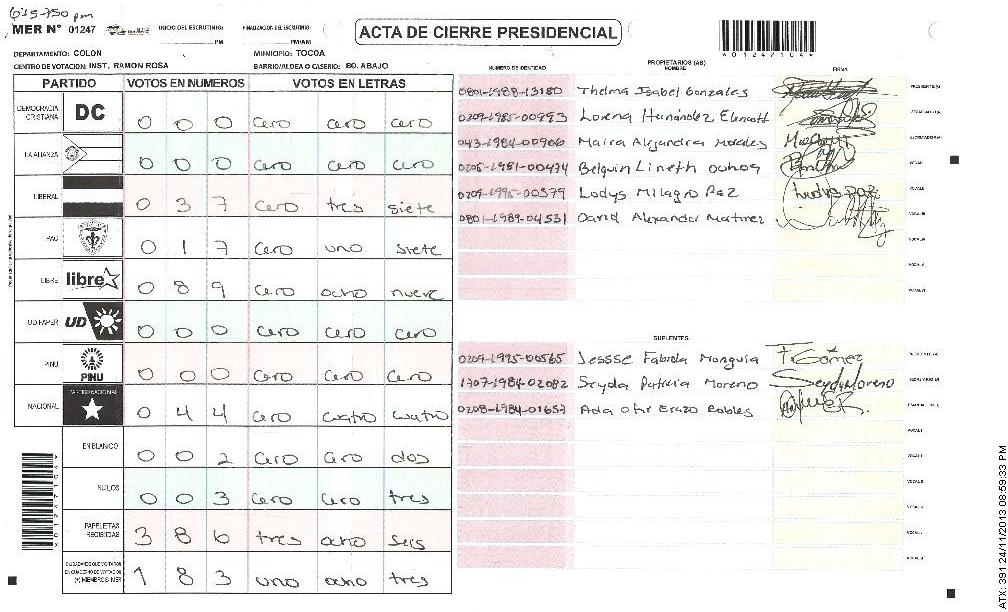 6:15-750 pm
MER Nº 01247 INICIO DEL ESCRUTINIO: PM FINALIZACION DEL ESCRUTINIO: PM/AM
ACTA DE CIERRE PRESIDENCIAL
DEPARTAMENTO: COLON MUNICIPIO: TOCOA
CENTRO DE VOTACION: INST. RAMON ROSA BARRIO/ALDEA O CASERIO: BO. ABAJO
PARTIDO VOTOS EN NUMEROS VOTOS EN LETRAS
DEMOCRACIA CRISTIANA DC 0 0 0 cero cero cero
LA ALIANZA 0 0 0 cero cero cero
LIBERAL 0 3 7 cero tres siete
PAC 0 1 7 cero uno siete
LIBRE libre 0 8 9 cero ocho nueve
UD FAPER UD 0 0 0 cero cero cero
PINU PINU 0 0 0 cero cero cero
NACIONAL PARTIDO NACIONAL 0 4 4 cero cuatro cuatro
EN BLANCO 0 0 2 cero cero dos
NULOS 0 0 3 cero cero tres
PAPELETAS RECIBIDAS 3 8 6 tres ocho seis
CIUDADANOS QUE VOTARON EN CUADERNO DE VOTACION (+) MIEMBROS MER 1 8 3 uno ocho tres
PROPIETARIOS (AS)
NUMERO DE IDENTIDAD NOMBRE FIRMA
0801-1988-13180 Thelma Isabel Gonzales PRESIDENTE (A)
0209-1985-00993 Lorena Hernández SECRETARIO (A)
043-1984-00906 Maira Alejandra Morales ESCRUTADOR (A)
0205-1981-00474 Belquin Lineth ochoa VOCAL I
0209-1995-00379 Lodys Milagro Paz Ludys paz VOCAL II
0801-1989-04531 David Alexander Martinez VOCAL III
VOCAL IV
VOCAL V
VOCAL VI
SUPLENTES
0209-1995-00565 Jessse Fabiola Monguia F. Gómez PRESIDENTE (A)
1707-1984-02082 Seyda Patricia Moreno Seydy Moreno SECRETARIO (A)
0208-1984-01657 Ada Ofir Erazo Robles ESCRUTADOR (A)
VOCAL I
VOCAL II
VOCAL III
VOCAL IV
VOCAL V
VOCAL VI
ATX: 391 24/11/2013 08:59:33 PM